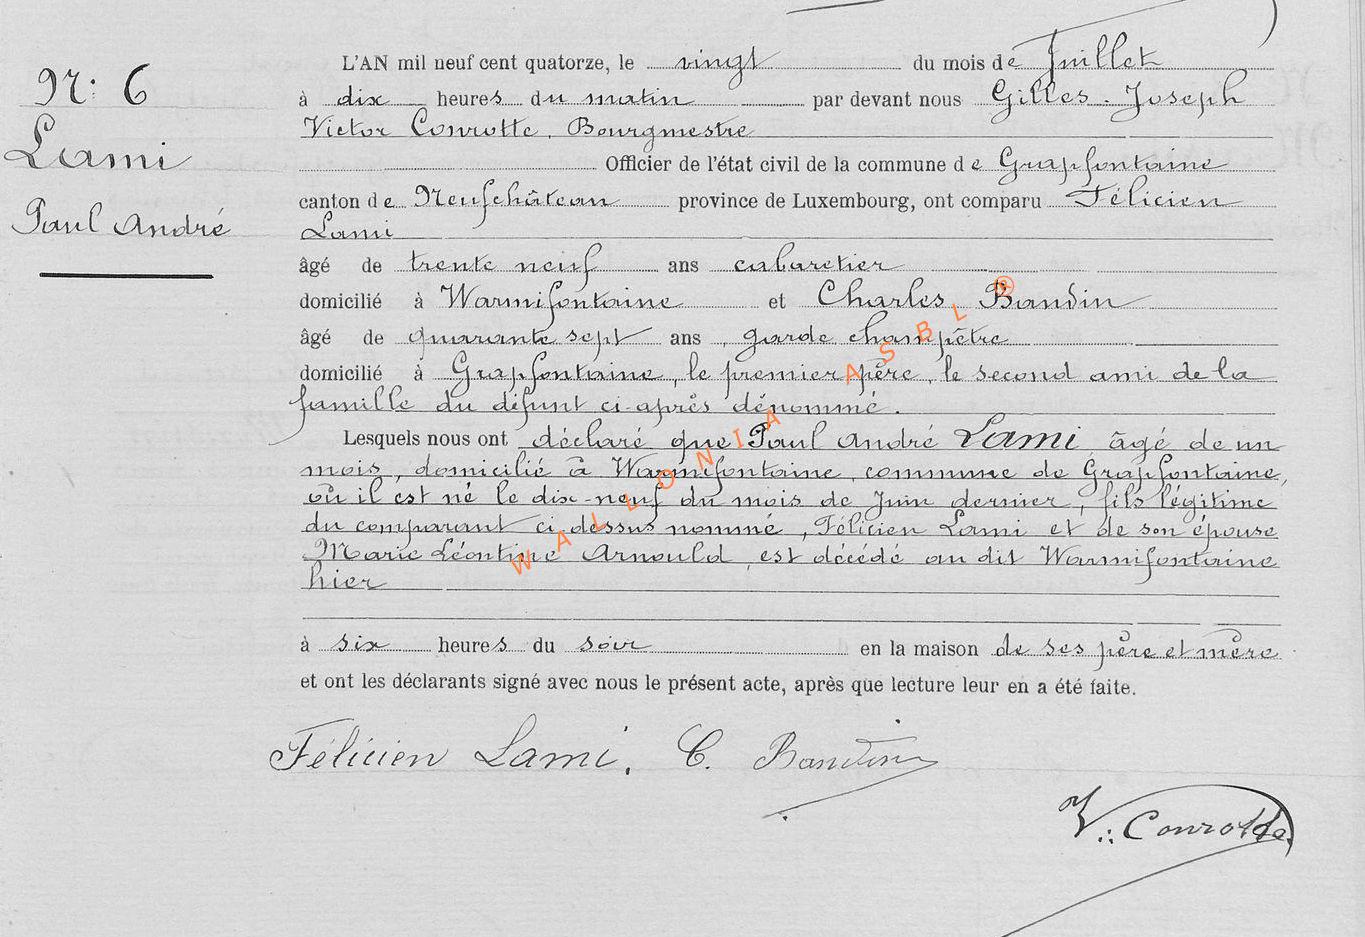 N: 6
Lami
Paul André
L'AN mil neuf cent quatorze, le vingt du mois de Juillet
à dix heures du matin par devant nous Gilles-Joseph
Victor Conrotte, Bourgmestre
Officier de l'état civil de la commune de Grapfontaine
canton de Neufchâteau province de Luxembourg, ont comparu Félicien
Lami
âgé de trente neuf ans cabaretier
domicilié à Warmifontaine et Charles Baudin
âgé de quarante sept ans, garde champêtre
domicilié à Grapfontaine, le premier père, le second ami de la
famille du défunt ci-après dénommé.
Lesquels nous ont déclaré que Paul André Lami, âgé de un
mois, domicilié à Warmifontaine, commune de Grapfontaine,
où il est né le dix-neuf du mois de Juin dernier, fils légitime
du comparant ci-dessus nommé, Félicien Lami et de son épouse
Marie Léontine Arnould, est décédé au dit Warmifontaine
hier
à six heures du soir en la maison de ses père et mère
et ont les déclarants signé avec nous le présent acte, après que lecture leur en a été faite.
Félicien Lami. C. Baudin
V. Conrotte
WALLONIA ASBL ®